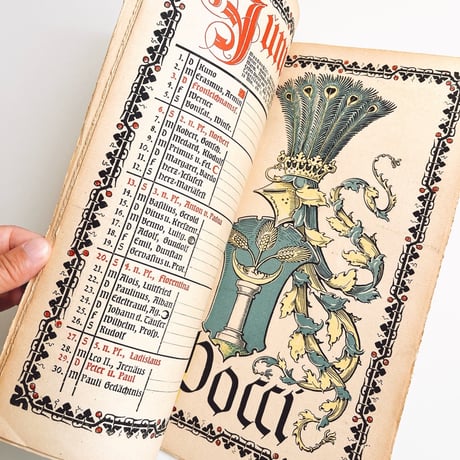 Jun
1. D Kuno
2. M Erasmus, Armin
3. D Fronleichnamsf.
4. F Werner
5. S Bonifat., Winfr.
6. S 2. n. Pf., Norbert
7. M Robert, Gottsch.
8. D Medard, Klodulf
9. M Primus u. Fel.
10. D Margaret, Bardo
11. F Herz-Jesufest
12. S Herz-Mariäfest
13. S 3. n. Pf., Anton v. Padua
14. M Basilius, Gerold
15. D Vitus u. Kreszent.
16. M Benno, Luitg.
17. D Adolf, Gundolf
18. F Emil, Dunstan
19. S Gervasius u. Prot.
20. S 4. n. Pf., Florentina
21. M Alois, Luitfried
22. D Paulinus, Alban
23. M Edeltraud, Ag.
24. D Johann d. Täufer
25. F Wilhelm, Prosp.
26. S Rudolf
27. S 5. n. Pf., Ladislaus
28. M Leo II., Irenäus
29. D Peter u. Paul
30. M Pauli Gedächtnis
Pocci